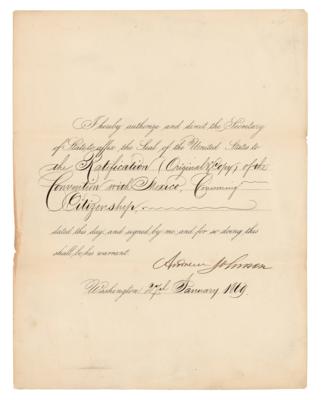 I hereby authorize and direct the Secretary
of State to affix the Seal of the United States to
the Ratification (Original & Copy) of the
Convention with Mexico, Concerning
Citizenship,
dated this day, and signed by me, and for so doing this
shall be his warrant.
Andrew Johnson
Washington, 27th January 1869.